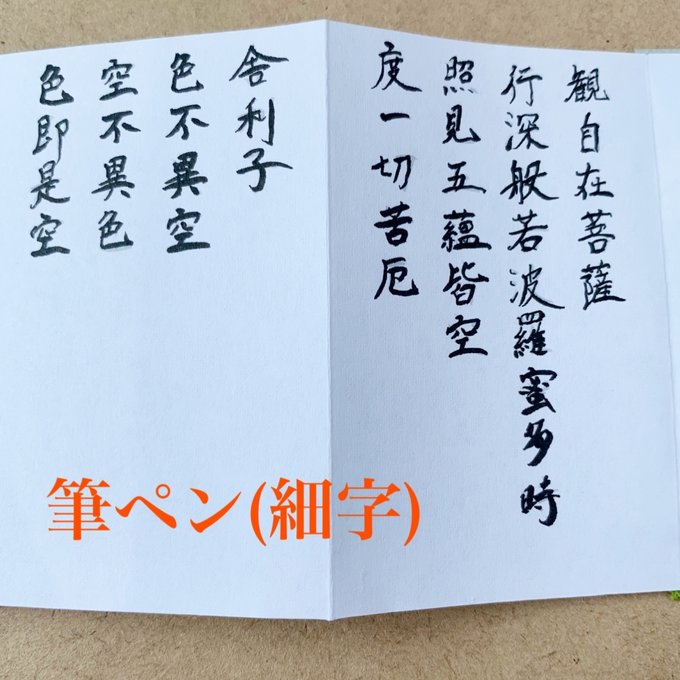 観自在菩薩
行深般若波羅蜜多時
照見五蘊皆空
度一切苦厄
舎利子
色不異空
空不異色
色即是空
筆ペン(細字)